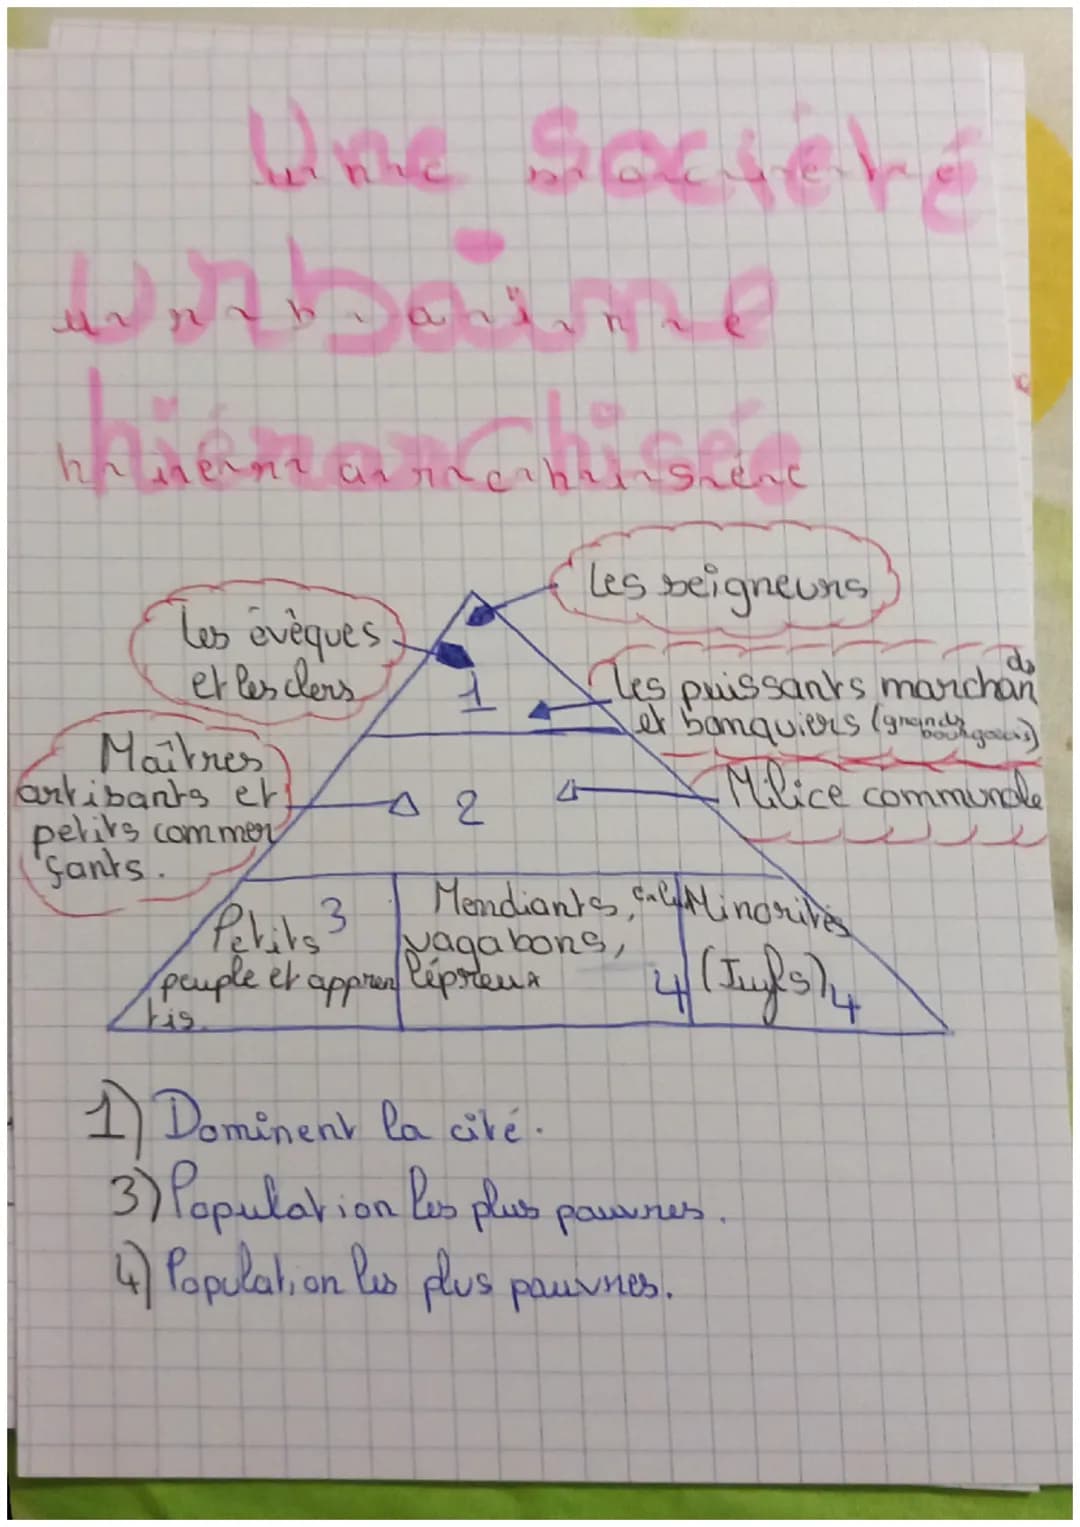 Une société
urbaine
hiérarchisée
Les seigneurs
Les évèques
et les clers
Les puissants marchands
et banquiers (grands
bourgeois)
Maîtres
artisants et
petits commer
çants.
Milice communale
1
2
Petits 3
peuple et appren
tis.
Mendiants,
vagabons,
lépreux
4
Minorités
(Juifs) 4
1) Dominent la cité.
3) Population les plus pauvres.
4) Population les plus pauvres.